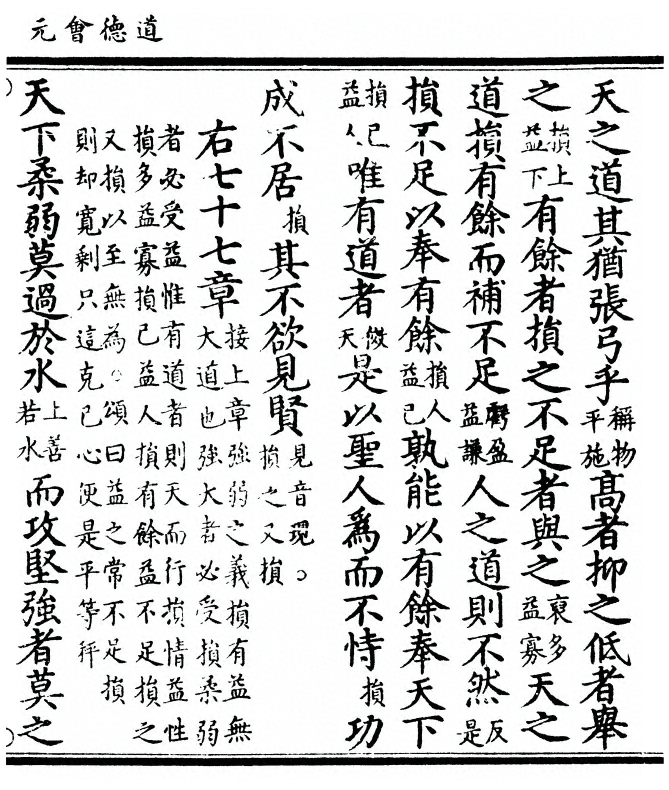 道德會元
天之道其猶張弓乎稱物平施髙者抑之低者舉
之損上益下有餘者損之不足者與之裒多益寡天之
道損有餘而補不足虧盈益謙人之道則不然反是
損不足以奉有餘損人益已孰能以有餘奉天下
損已益人唯有道者傚天是以聖人爲而不恃損功
成不居損其不欲見賢見音現。損之又損
右七十七章接上章強弱之義損有益無
大道也強大者必受損柔弱
者必受益惟有道者則天而行損情益性
損多益寡損已益人損有餘益不足損之
又損以至無為。頌曰益之常不足損
則却寬剩只這克已心便是平等秤
天下柔弱莫過於水上善若水而攻堅強者莫之